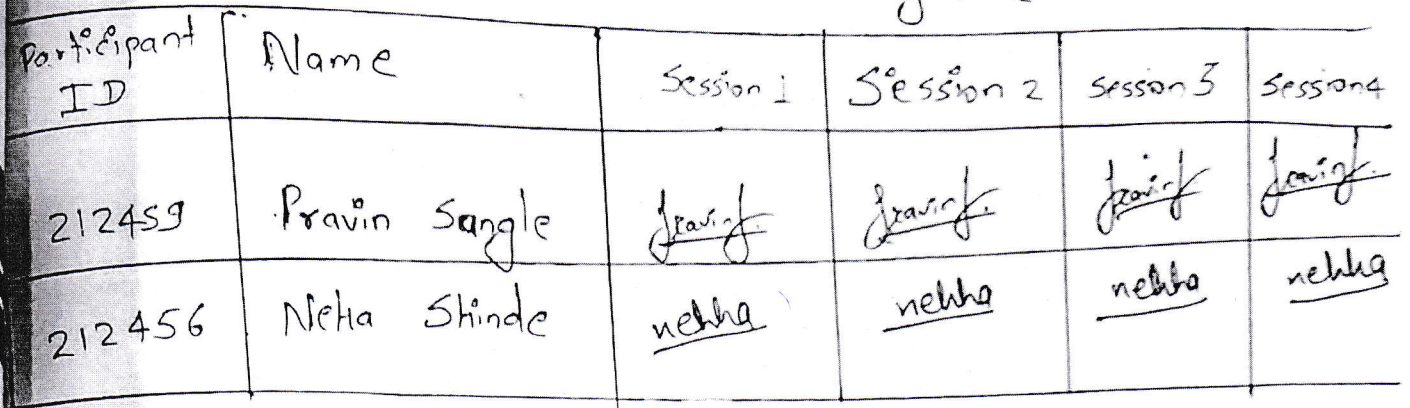 Participant ID Name Session 1 Session 2 Session 3 Session 4
212459 Pravin Sangle
212456 Neha Shinde nehha nehha nehha nehha